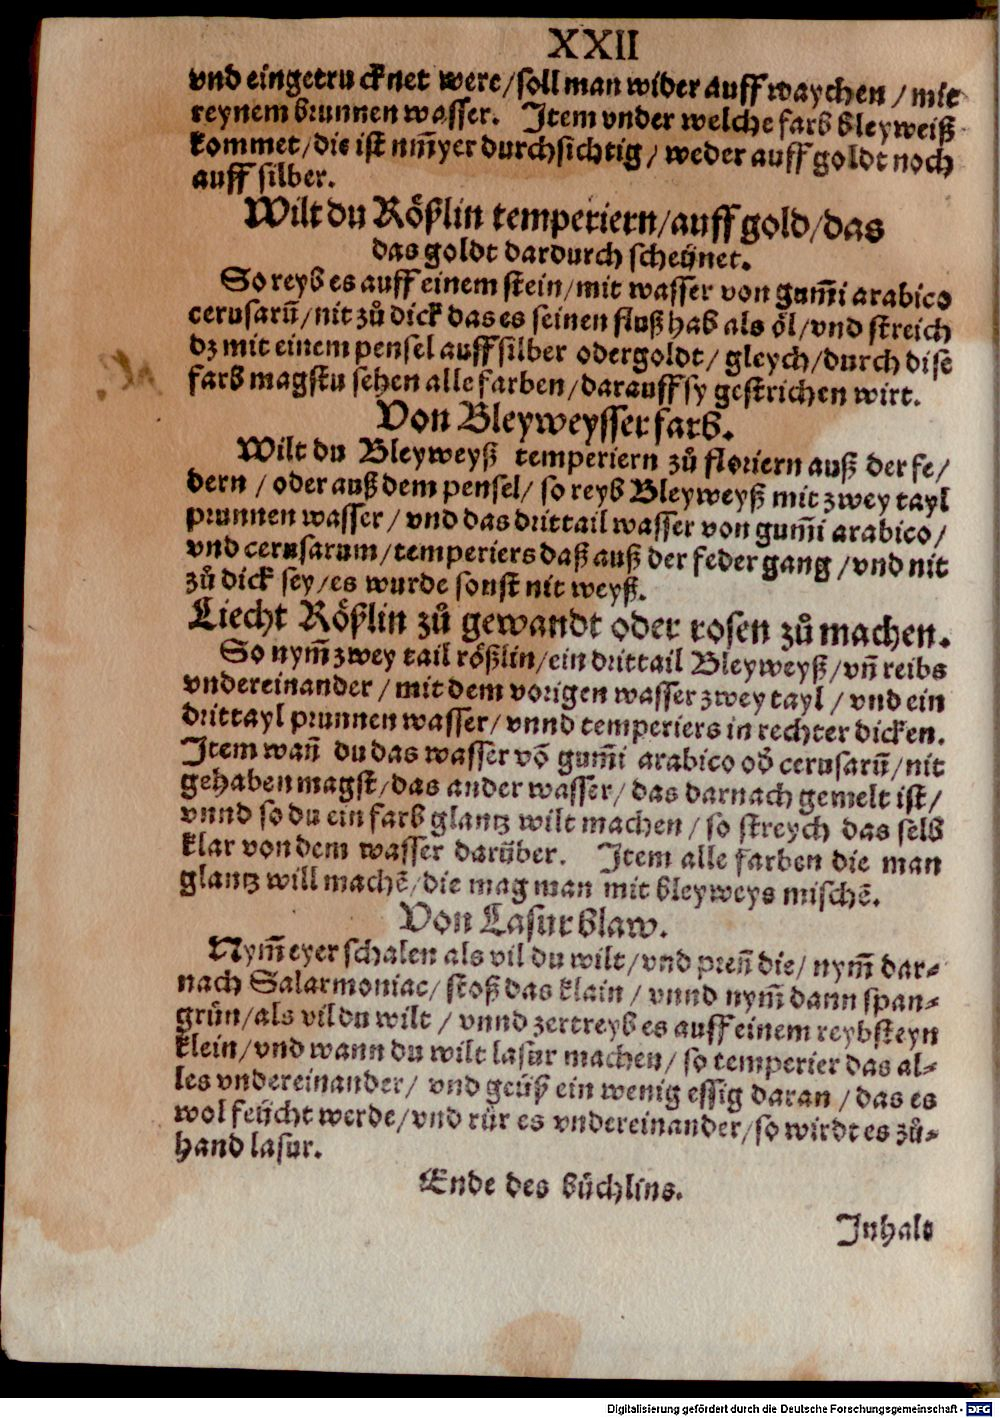 XXII
vnd eingetrucknet were/soll man wider auff waychen/mit
reynem brunnen wasser. Item vnder welche farb bleyweiß
kommet/die ist nim̄yer durchsichtig/weder auff goldt noch
auff silber.
Wilt du Rößlin temperiern/auff gold/das
das goldt dardurch scheÿnet.
So reyb es auff einem stein/mit wasser von gum̄i arabico
cerusarū/nit zů dick das es seinen fluß hab als öl/vnd streich
dz mit einem pensel auff silber oder goldt/gleych/durch dise
farb magstu sehen alle farben/darauff sy gestrichen wirt.
Von Bleyweysser farb.
Wilt du Bleyweyß temperiern zů floriern auß der fe/
dern/oder auß dem pensel/so reyb Bleyweyß mit zwey tayl
prunnen wasser/vnd das drittail wasser von gum̄i arabico/
vnd cerusarum/temperiers daß auß der feder gang/vnd nit
zů dick sey/es wurde sonst nit weyß.
Liecht Rößlin zů gewandt oder rosen zů machen.
So nym̄ zwey tail rößlin/ein drittail Bleyweyß/vn̄ reibs
vndereinander/mit dem vorigen wasser zwey tayl/vnd ein
drittayl prunnen wasser/vnnd temperiers in rechter dicken.
Item wan̄ du das wasser vō gum̄i arabico od̓ cerusarū/nit
gehaben magst/das ander wasser/das darnach gemelt ist/
vnnd so du ein farb glantz wilt machen/so streych das selb
klar von dem wasser darüber. Item alle farben die man
glantz will machē/die mag man mit bleyweys mischē.
Von Lasur blaw.
Nym̄ eyer schalen als vil du wilt/vnd pren̄ die/nym̄ dar-
nach Salarmoniac/stoß das klain/vnnd nym̄ dann span-
grün/als vil du wilt/vnnd zertreyb es auff einem reybsteyn
klein/vnd wann du wilt lasur machen/so temperier das al-
les vndereinander/vnd geüß ein wenig essig daran/das es
wol feÿcht werde/vnd rür es vndereinander/so wirdt es zů-
hand lasur.
Ende des bůchlins.
Inhalt
Digitalisierung gefördert durch die Deutsche Forschungsgemeinschaft - DFG